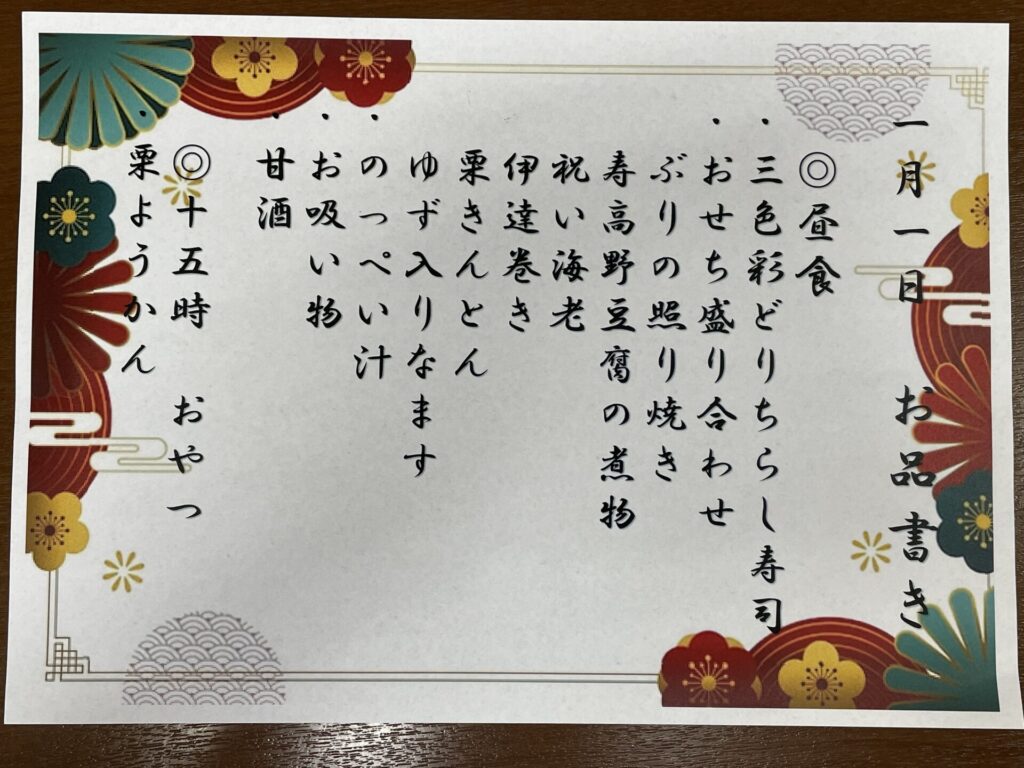 一月一日 お品書き
◎昼食
・三色彩どりちらし寿司
・おせち盛り合わせ
ぶりの照り焼き
寿高野豆腐の煮物
祝い海老
伊達巻き
栗きんとん
ゆず入りなます
・のっぺい汁
・お吸い物
・甘酒
◎十五時 おやつ
・栗ようかん